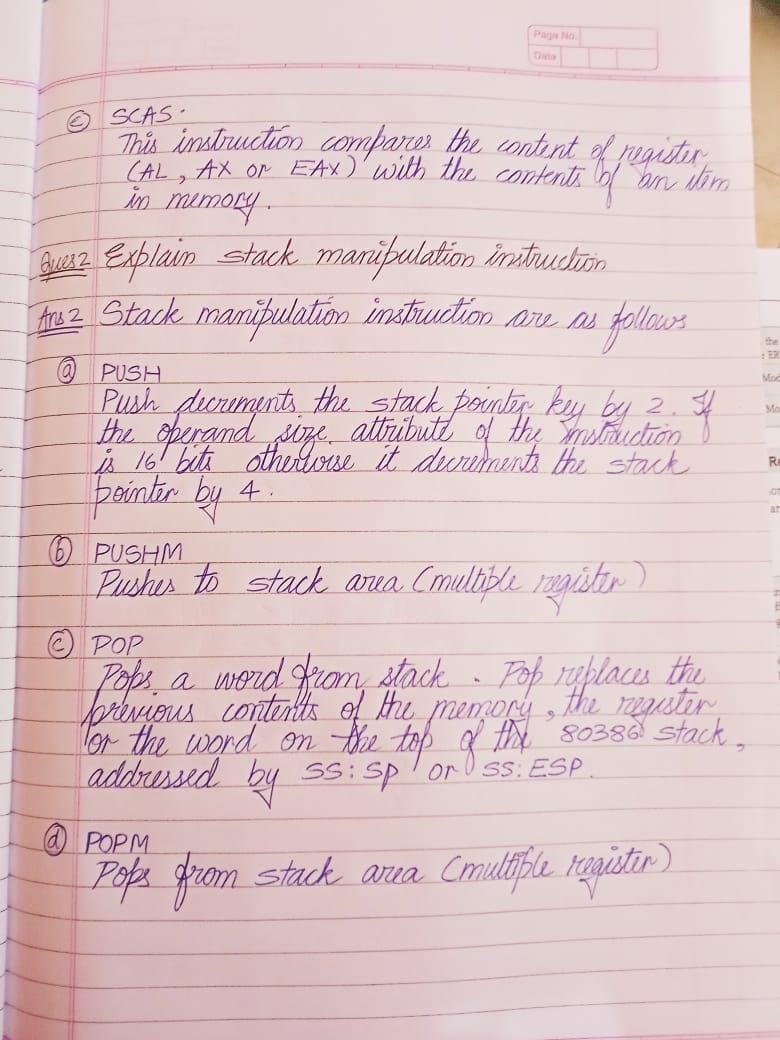 Page No.
Date
(c) SCAS.
This instruction compares the content of register
(AL, AX or EAX) with the contents of an item
in memory.
Ques2 Explain stack manipulation instruction
Ans2 Stack manipulation instruction are as follows
(a) PUSH
Push decrements the stack pointer key by 2. If
the operand size attribute of the instruction
is 16 bits otherwise it decrements the stack
pointer by 4.
(b) PUSHM
Pushes to stack area (multiple register)
(c) POP
Pops a word from stack. Pop replaces the
previous contents of the memory, the register
or the word on the top of the 80386 stack,
addressed by SS:SP or SS:ESP.
(d) POPM
Pops from stack area (multiple register)